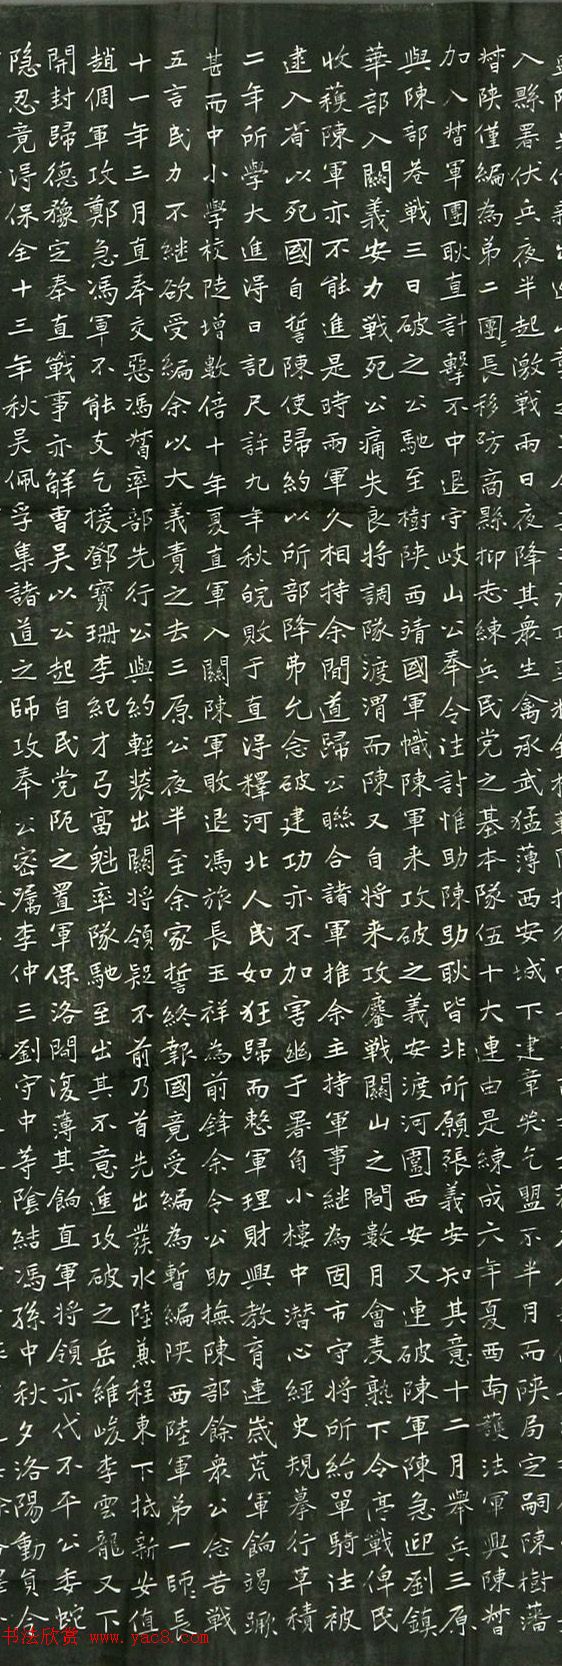 入縣署伏兵夜半起激戰兩日夜降其衆生禽承武猛薄西安城下建章癸乞盟不半月而陝局定嗣陳樹藩
督陝僅編為第二團長移防高縣抑志練兵民党之基本隊伍十大連由是練成六年夏西南護法軍興陳督
加入督軍團耿直計擊不中退守岐山公奉令往討惟助陳助耿皆非所願張義安知其意十二月舉兵三原
與陳部巷戰三日破之公馳至樹陝西靖國軍幟陳軍来攻破之義安渡河圍西安又連破陳軍陳急迎劉鎮
華部入關義安力戰死公痛失良將調隊渡渭而陳又自将来攻鏖戰關山之間數月會麦熟下令停戰俾民
收穫陳軍亦不能進是時兩軍久相持余間道歸公聯合諸軍推余主持軍事継為固市守将所紿單騎往被
逮入省以死國自誓陳使歸約以所部降弗允念破建功亦不加害幽于署角小樓中潜心經史規摹行草積
二年所學大進得日記尺許九年秋皖敗于直得釋河北人民如狂歸而整軍理財興教育連歲荒軍餉竭蹶
甚而中小學校陸增數倍十年夏直軍入關陳軍敗退馮旅長玉祥為前鋒余令公助撫陳部餘衆公念苦戰
五言民力不継欲受編余以大義責之去三原公夜半至余家誓終報國竟受編為暫編陝西陸軍第一師師長
十一年三月直奉交惡馮督率部先行公與約輕装出關将領疑不前乃首先出發水陸兼程東下抵新安值
趙倜軍攻鄭急馮軍不能支乞援鄧寶珊李紀才弓富魁率隊馳至出其不意進攻破之岳維峻李雲龍又下
開封歸德豫定奉直戰事亦解曹吳以公起自民党阨之置軍保洛間復薄其餉直軍将領亦代不平公委蛇
隐忍竟得保全十三年秋吳佩孚集諸道之師攻奉公密嘱李仲三劉守中等陰結馮孫中秋夕洛陽動員令
书法欣赏 www.yac8.com